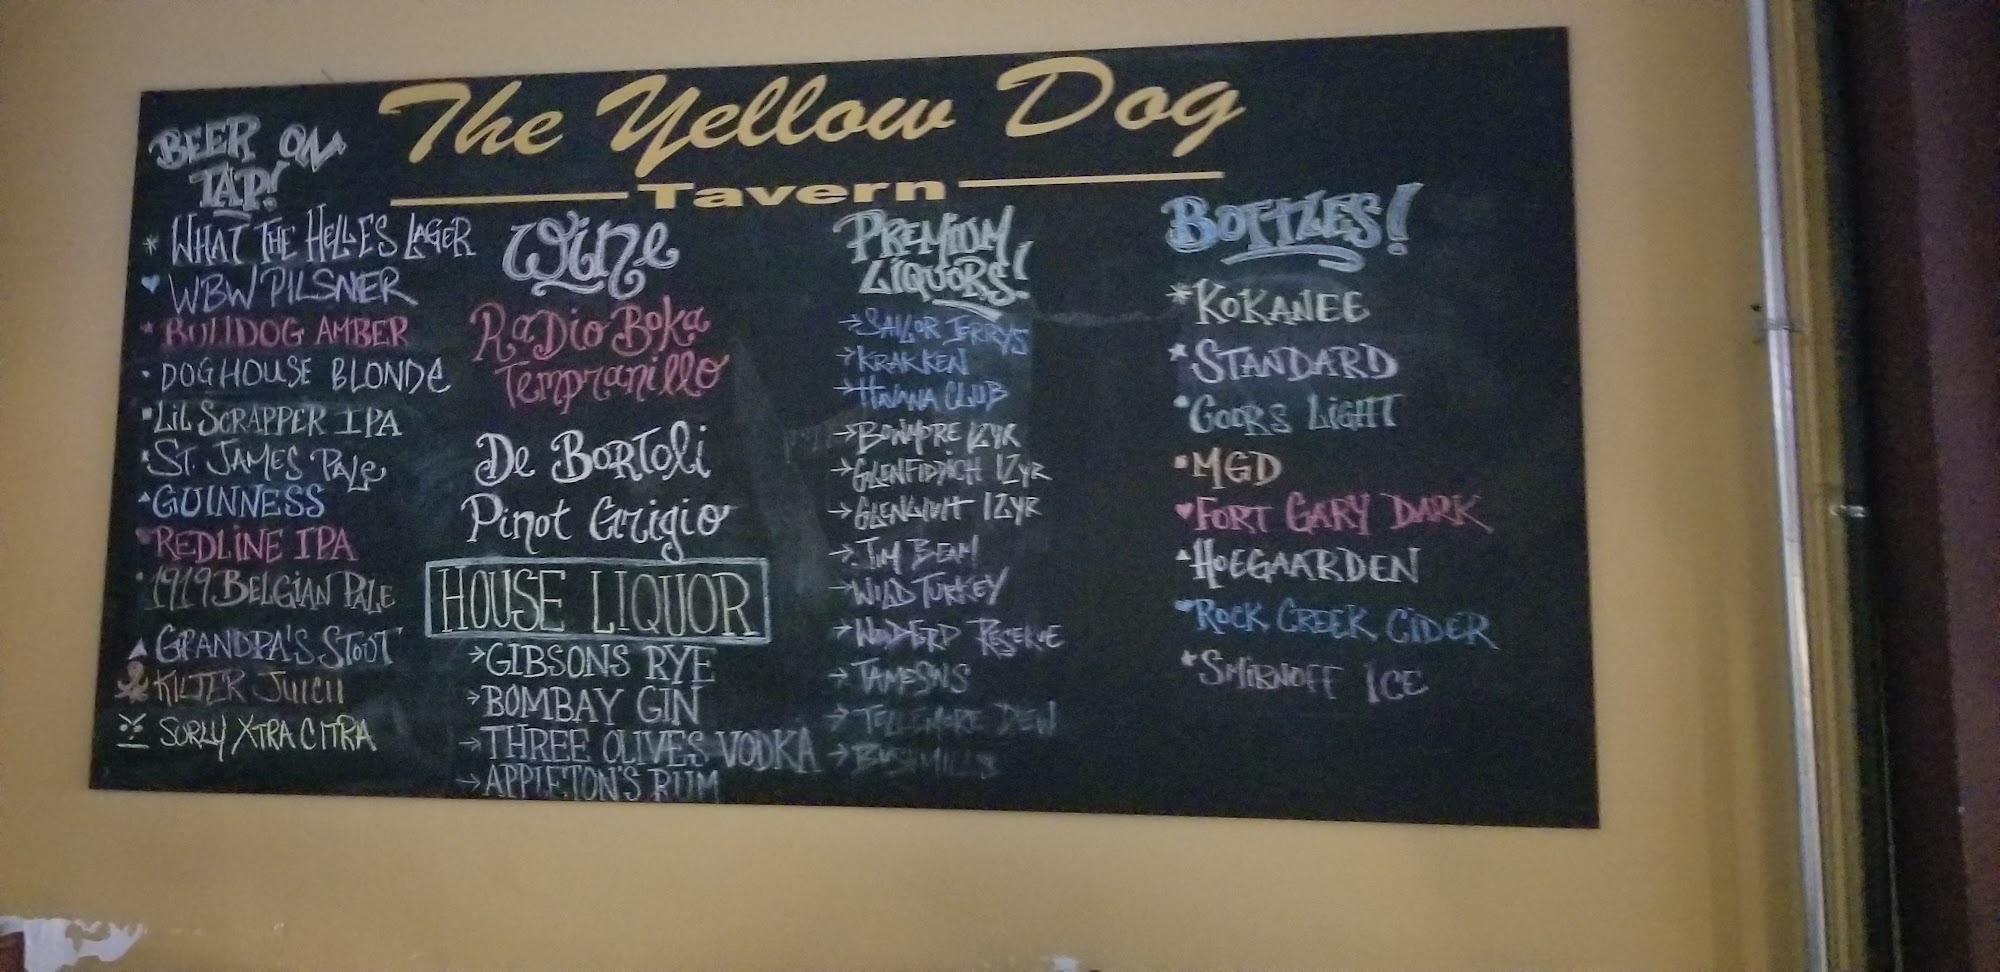 The Yellow Dog
Tavern
BEER ON
TAP!
WHAT THE HELLES LAGER
WBW PILSNER
BULLDOG AMBER
DOGHOUSE BLONDE
LIL SCRAPPER IPA
ST. JAMES PALE
GUINNESS
REDLINE IPA
1919 BELGIAN PALE
GRANDPA'S STOUT
KILTER JUICII
SURLY XTRA CITRA
Wine
Radio Boka
Tempranillo
De Bortoli
Pinot Grigio
HOUSE LIQUOR
→GIBSONS RYE
→BOMBAY GIN
→THREE OLIVES VODKA
→APPLETON'S RUM
PREMIUM
LIQUORS!
→SAILOR JERRYS
→KRAKKEN
→HAVANA CLUB
→BOWMORE 12YR
→GLENFIDDICH 12YR
→GLENLIVIT 12YR
→JIM BEAM
→WILD TURKEY
→WOODFRD RESERVE
→JAMESONS
→TELLEMORE DEW
→BUSHMILLS
BOTTLES!
*KOKANEE
*STANDARD
COORS LIGHT
MGD
FORT GARY DARK
HOEGAARDEN
ROCK CREEK CIDER
SMIRNOFF ICE